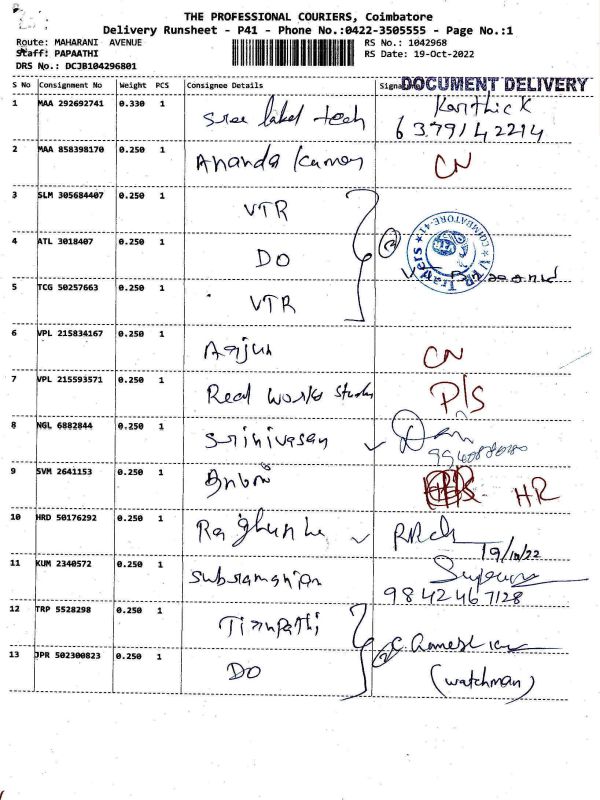 THE PROFESSIONAL COURIERS, Coimbatore
Delivery Runsheet - P41 - Phone No.:0422-3505555 - Page No.:1
Route: MAHARANI AVENUE
Staff: PAPAATHI
DRS No.: DCJB104296801
RS No.: 1042968
RS Date: 19-Oct-2022
S No Consignment No Weight PCS Consignee Details
DOCUMENT DELIVERY
1 MAA 292692741 0.330 1 Sree label tech Karthick
6379142214
2 MAA 858398170 0.250 1 Ananda Kumar CN
3 SLM 305684407 0.250 1 VTR
4 ATL 3018407 0.250 1 DO
COIMBATORE-41
5 TCG 50257663 0.250 1 VTR
6 VPL 215834167 0.250 1 Arjun CN
7 VPL 215593571 0.250 1 Real works P/S
8 NGL 6882844 0.250 1 Srinivasan
9 SVM 2641153 0.250 1 HR
10 HRD 50176292 0.250 1
19/10/22
11 KUM 2340572 0.250 1 Subramanian
9842467128
12 TRP 5528298 0.250 1
13 JPR 502300823 0.250 1 DO (watchman)